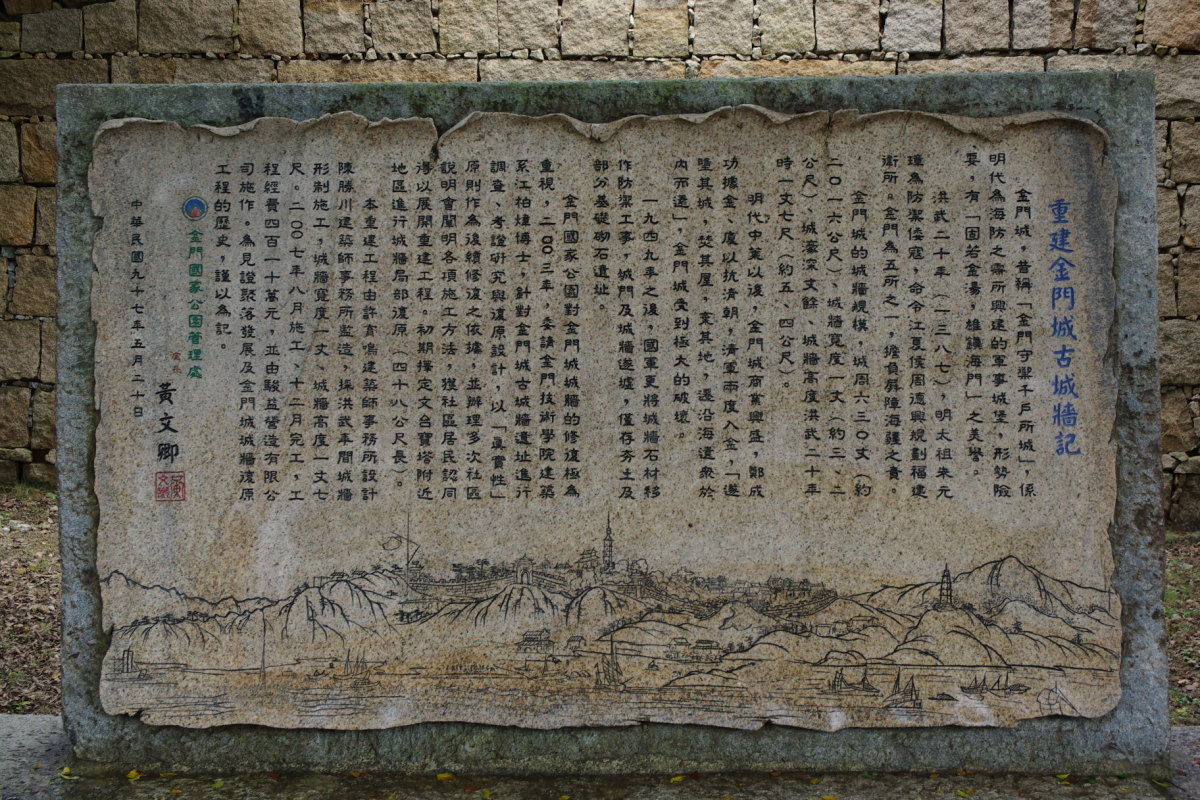 重建金門城古城牆記
金門城，昔稱「金門守禦千戶所城」，係
明代為海防之需所興建的軍事城堡，形勢險
要，有「固若金湯，雄鎮海門」之美譽。
洪武二十年（一三八七），明太祖朱元
璋為防禦倭寇，命令江夏侯周德興規劃福建
衛所。金門為五所之一，擔負屏障海疆之責。
金門城的城牆規模，城周六三０丈（約
二０一六公尺）、城牆寬度一丈（約三、二
公尺）、城濠深丈餘、城牆高度洪武二十年
時一丈七尺（約五、四公尺）。
明代中葉以後，金門城商業興盛，鄭成
功據金、廈以抗清朝，清軍兩度入金，「遂
墮其城，焚其屋，棄其地，遷沿海遺衆於
內而還」，金門城受到極大的破壞。
一九四九年之後，國軍更將城牆石材移
作防禦工事，城門及城牆遂墟，僅存夯土及
部分基礎砌石遺址。
金門國家公園對金門城城牆的修復極為
重視，二００三年，委請金門技術學院建築
系江柏煒博士，針對金門城古城牆遺址進行
調查、考證研究與復原設計，以「真實性」
原則作為後續修復之依據，並辦理多次社區
說明會闡明各項施工方法，獲社區居民認同
得以展開重建工程。初期擇定文台寶塔附近
地區進行城牆局部復原（四十八公尺長）。
本重建工程由許育鳴建築師事務所設計
陳勝川建築師事務所監造，採洪武年間城牆
形制施工，城牆寬度一丈、城牆高度一丈七
尺。二００七年八月施工、十二月完工，工
程經費四百一十萬元，並由駿益營造有限公
司施作。為見證聚落發展及金門城城牆復原
工程的歷史，謹以為記。
金門國家公園管理處
處長 黃文卿
中華民國九十七年五月二十日